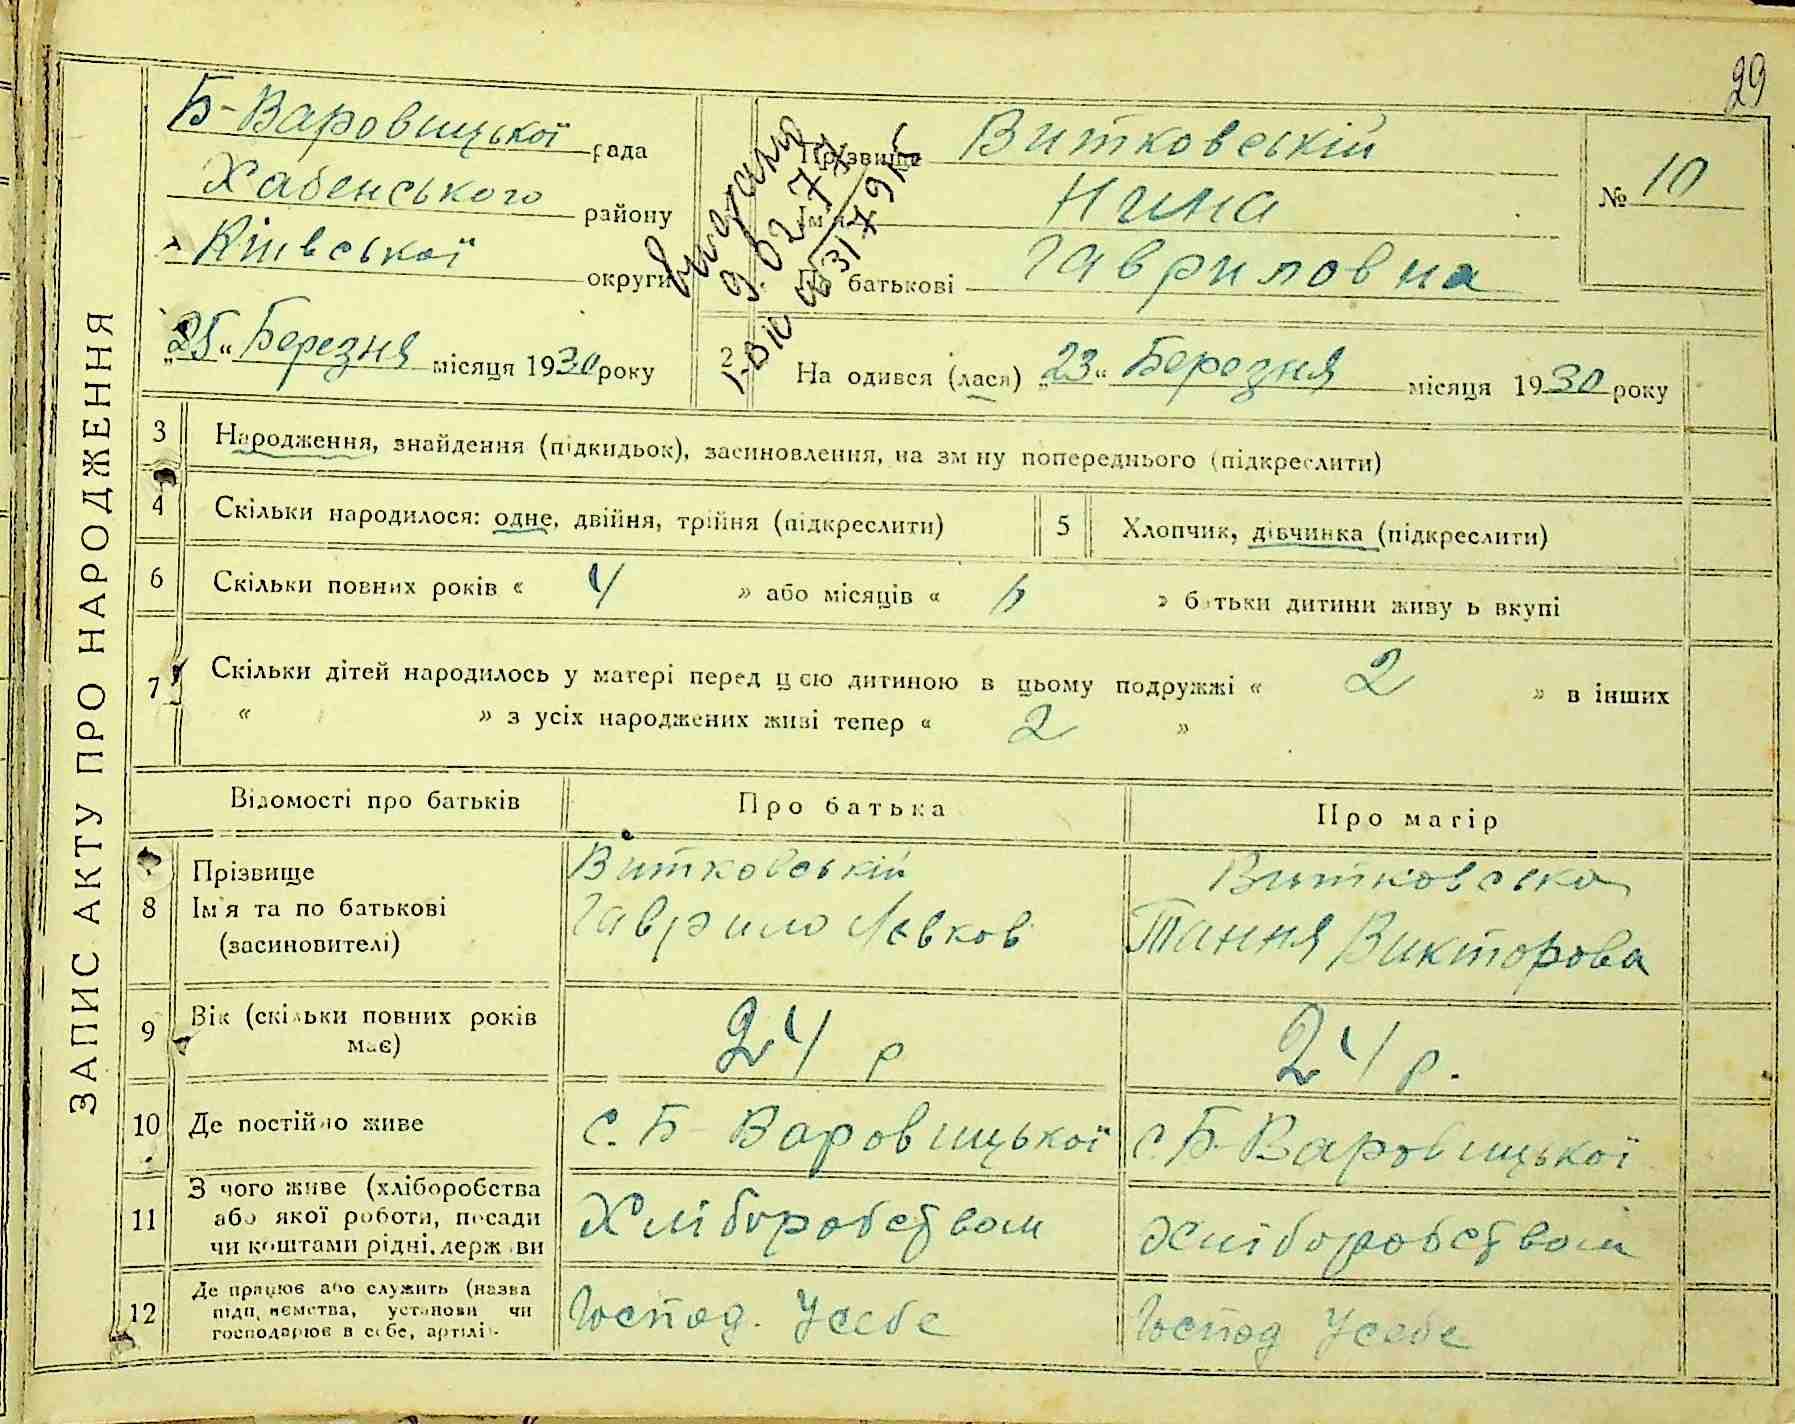 29
ЗАПИС АКТУ ПРО НАРОДЖЕННЯ
Б-Варовицької рада
Хабенського району
Київської округи
„25“ Березня місяця 1930 року
Прізвище Витковській
Ім'я Нина
По батькові Гавриловна
№ 10
видано
9.02.73
2 На одився (лася) „23“ Березня місяця 1930 року
3 Народження, знайдення (підкидьок), засиновлення, на зм ну попереднього (підкреслити)
4 Скільки народилося: одне, двійня, трійня (підкреслити)
5 Хлопчик, дівчинка (підкреслити)
6 Скільки повних років « 4 » або місяців « » б тьки дитини живу ь вкупі
7 Скільки дітей народилось у матері перед ц єю дитиною в цьому подружжі « 2 » в інших
« » з усіх народжених живі тепер « 2 »
Відомості про батьків Про батька Про матір
8 Прізвище
Ім'я та по батькові
(засиновителі)
Витковській
Гаврило Левков
Витковська
Тання Викторова
9 Вік (скільки повних років
має)
24 р
24 р.
10 Де постійно живе с. Б-Варовицької с. Б-Варовицької
11 З чого живе (хліборобства
або якої роботи, посади
чи коштами рідні, держ ви
Хліборобством
Хліборобством
12 Де працює або служить (назва
підп иємства, установи чи
господарює в себе, артілі
Господ. Усебе
Господ Усебе